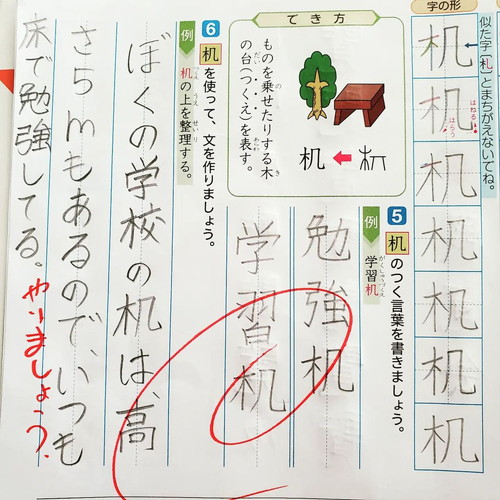 字の形
似た字〔札〕とまちがえないでね。
机
机
はねる
はらう
机
机
机
机
机
5 机のつく言葉を書きましょう。
例 学習机
がくしゅうづくえ
勉強机
学習机
でき方
机
ものを乗せたりする木
の台(つくえ)を表す。
6 机を使って、文を作りましょう。
例 机の上を整理する。
ぼくの学校の机は、高
さ5mもあるので、いつも
床で勉強してる。
やりましょう。